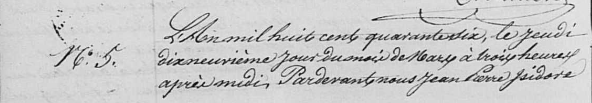 L'An mil huit cent quarante six, le jeudi
N.º 5. dixneuvième jour du mois de Mars à trois heures
après midi, Pardevant nous Jean Pierre Isidore